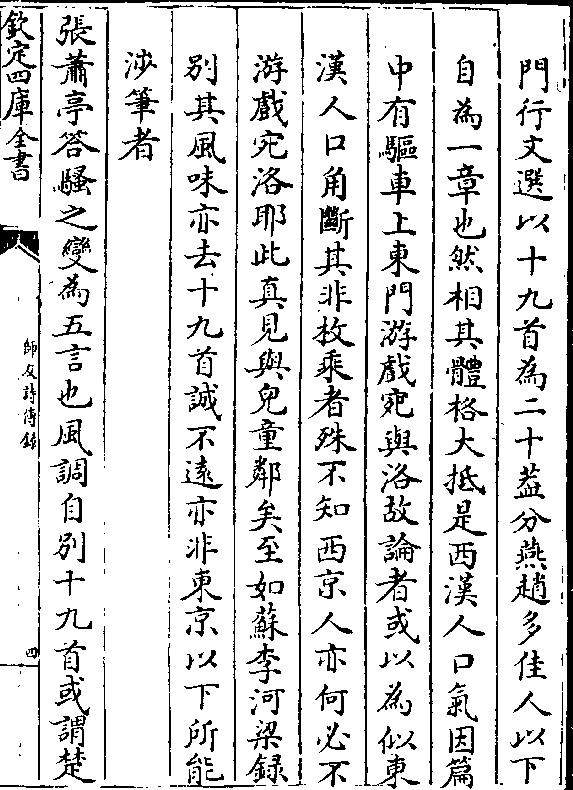 門行文選以十九首為二十葢分燕趙多佳人以下
自為一章也然相其體格大抵是西漢人口氣因篇
中有驅車上東門游戲宛與洛故論者或以為似東
漢人口角斷其非枚乘者殊不知西京人亦何必不
游戲宛洛耶此真見與兒童鄰矣至如蘇李河梁録
别其風味亦去十九首誠不遠亦非東京以下所能
涉筆者
張蕭亭答騷之變為五言也風調自别十九首或謂楚
欽定四庫全書
師友詩傳錄
四